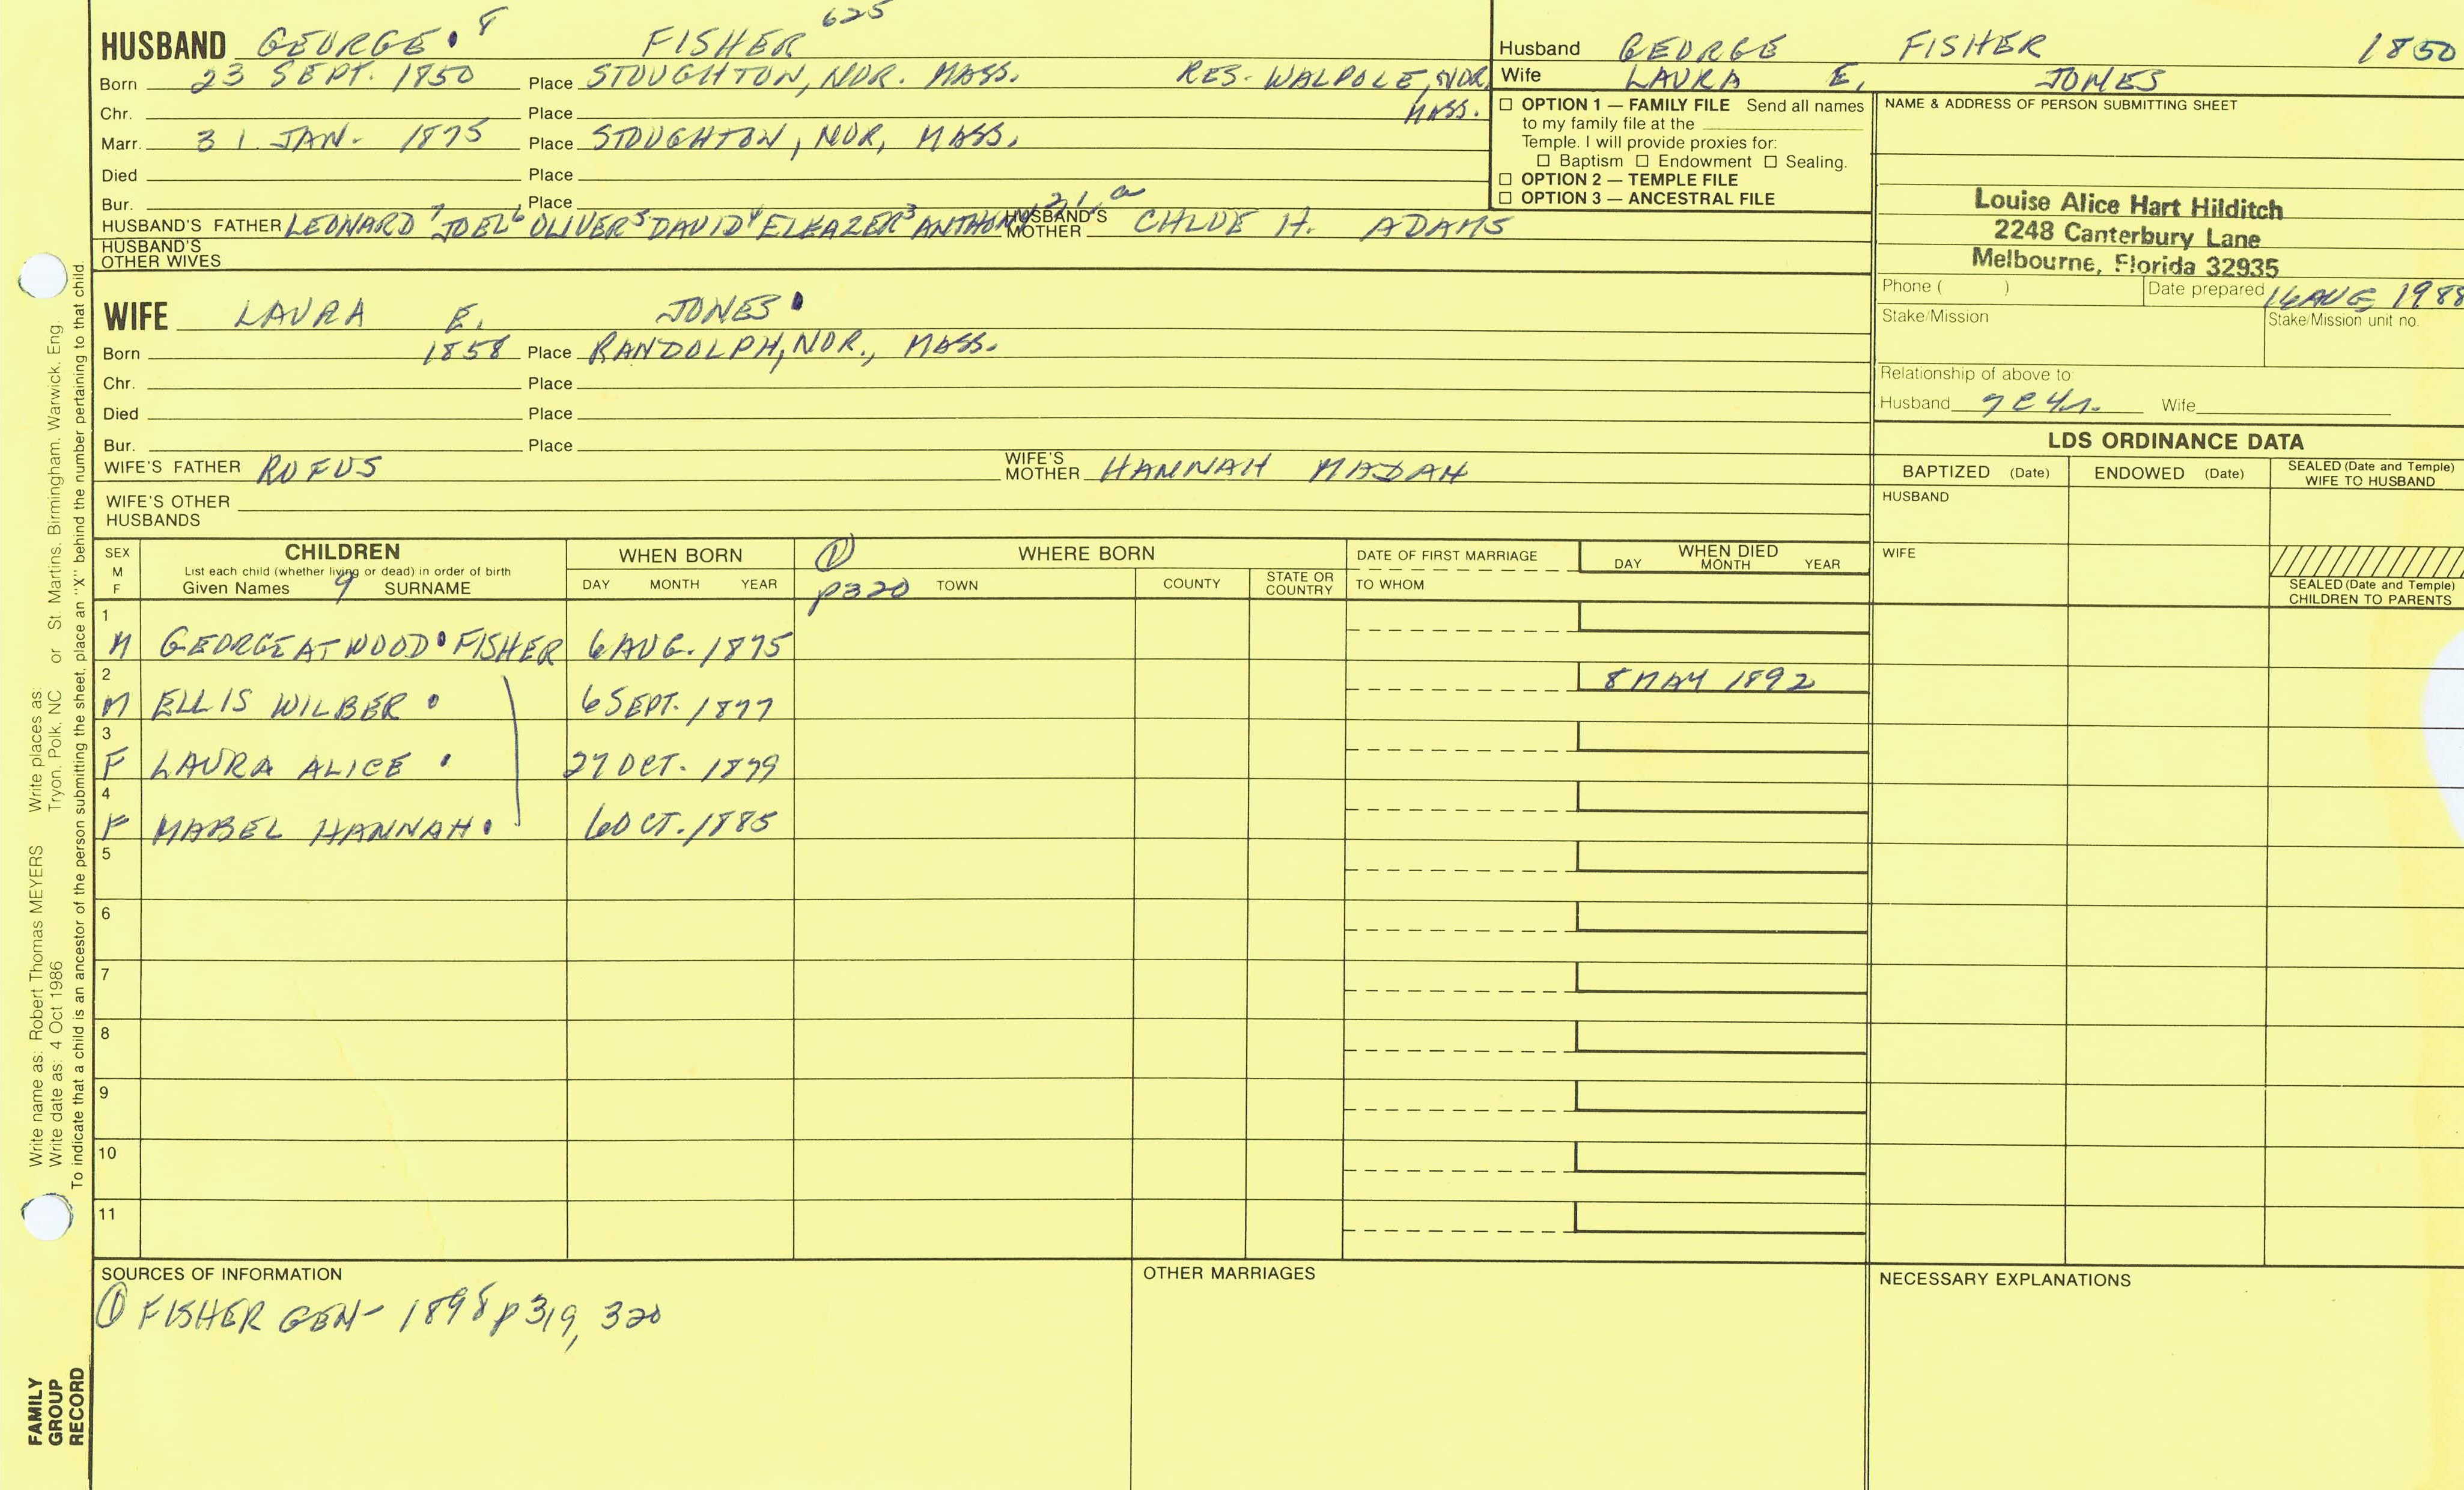 625
HUSBAND GEORGE 8 FISHER
Born 23 SEPT. 1850 Place STOUGHTON, NOR. MASS. RES. WALPOLE, NOR, MASS.
Chr. Place
Marr. 31 JAN. 1875 Place STOUGHTON, NOR, MASS.
Died Place
Bur. Place
HUSBAND'S FATHER LEONARD 7 JOEL 6 OLIVER 5 DAVID 4 ELEAZER 3 ANTHONY 2, 1, a HUSBAND'S MOTHER CHLOE H. ADAMS
HUSBAND'S OTHER WIVES
WIFE LAURA E. JONES
Born 1858 Place RANDOLPH, NOR., MASS.
Chr. Place
Died Place
Bur. Place
WIFE'S FATHER RUFUS WIFE'S MOTHER HANNAH MADAH
WIFE'S OTHER HUSBANDS
Husband GEORGE FISHER 1850
Wife LAURA E. JONES
☐ OPTION 1 — FAMILY FILE Send all names
to my family file at the
Temple. I will provide proxies for:
☐ Baptism ☐ Endowment ☐ Sealing.
☐ OPTION 2 — TEMPLE FILE
☐ OPTION 3 — ANCESTRAL FILE
NAME & ADDRESS OF PERSON SUBMITTING SHEET
Louise Alice Hart Hilditch
2248 Canterbury Lane
Melbourne, Florida 32935
Phone ( ) Date prepared 16 AUG 1988
Stake/Mission Stake/Mission unit no.
Relationship of above to:
Husband Wife
LDS ORDINANCE DATA
BAPTIZED (Date) ENDOWED (Date) SEALED (Date and Temple) WIFE TO HUSBAND
HUSBAND
WIFE
SEALED (Date and Temple)
CHILDREN TO PARENTS
SEX M F CHILDREN
List each child (whether living or dead) in order of birth
Given Names 9 SURNAME
WHEN BORN
DAY MONTH YEAR
① p320
WHERE BORN
TOWN COUNTY STATE OR COUNTRY
DATE OF FIRST MARRIAGE
TO WHOM
WHEN DIED
DAY MONTH YEAR
1
M GEORGE ATWOOD FISHER 6 AUG. 1875
2
M ELLIS WILBER 6 SEPT. 1877 8 MAY 1892
3
F LAURA ALICE 27 OCT. 1879
4
F MABEL HANNAH 6 OCT. 1885
5
6
7
8
9
10
11
SOURCES OF INFORMATION
① FISHER GEN- 1898 p319, 320
OTHER MARRIAGES
NECESSARY EXPLANATIONS
Write name as: Robert Thomas MEYERS Write places as:
Write date as: 4 Oct 1986 Tryon, Polk, NC or St. Martins, Birmingham, Warwick, Eng.
To indicate that a child is an ancestor of the person submitting the sheet, place an "X" behind the number pertaining to that child.
FAMILY
GROUP
RECORD